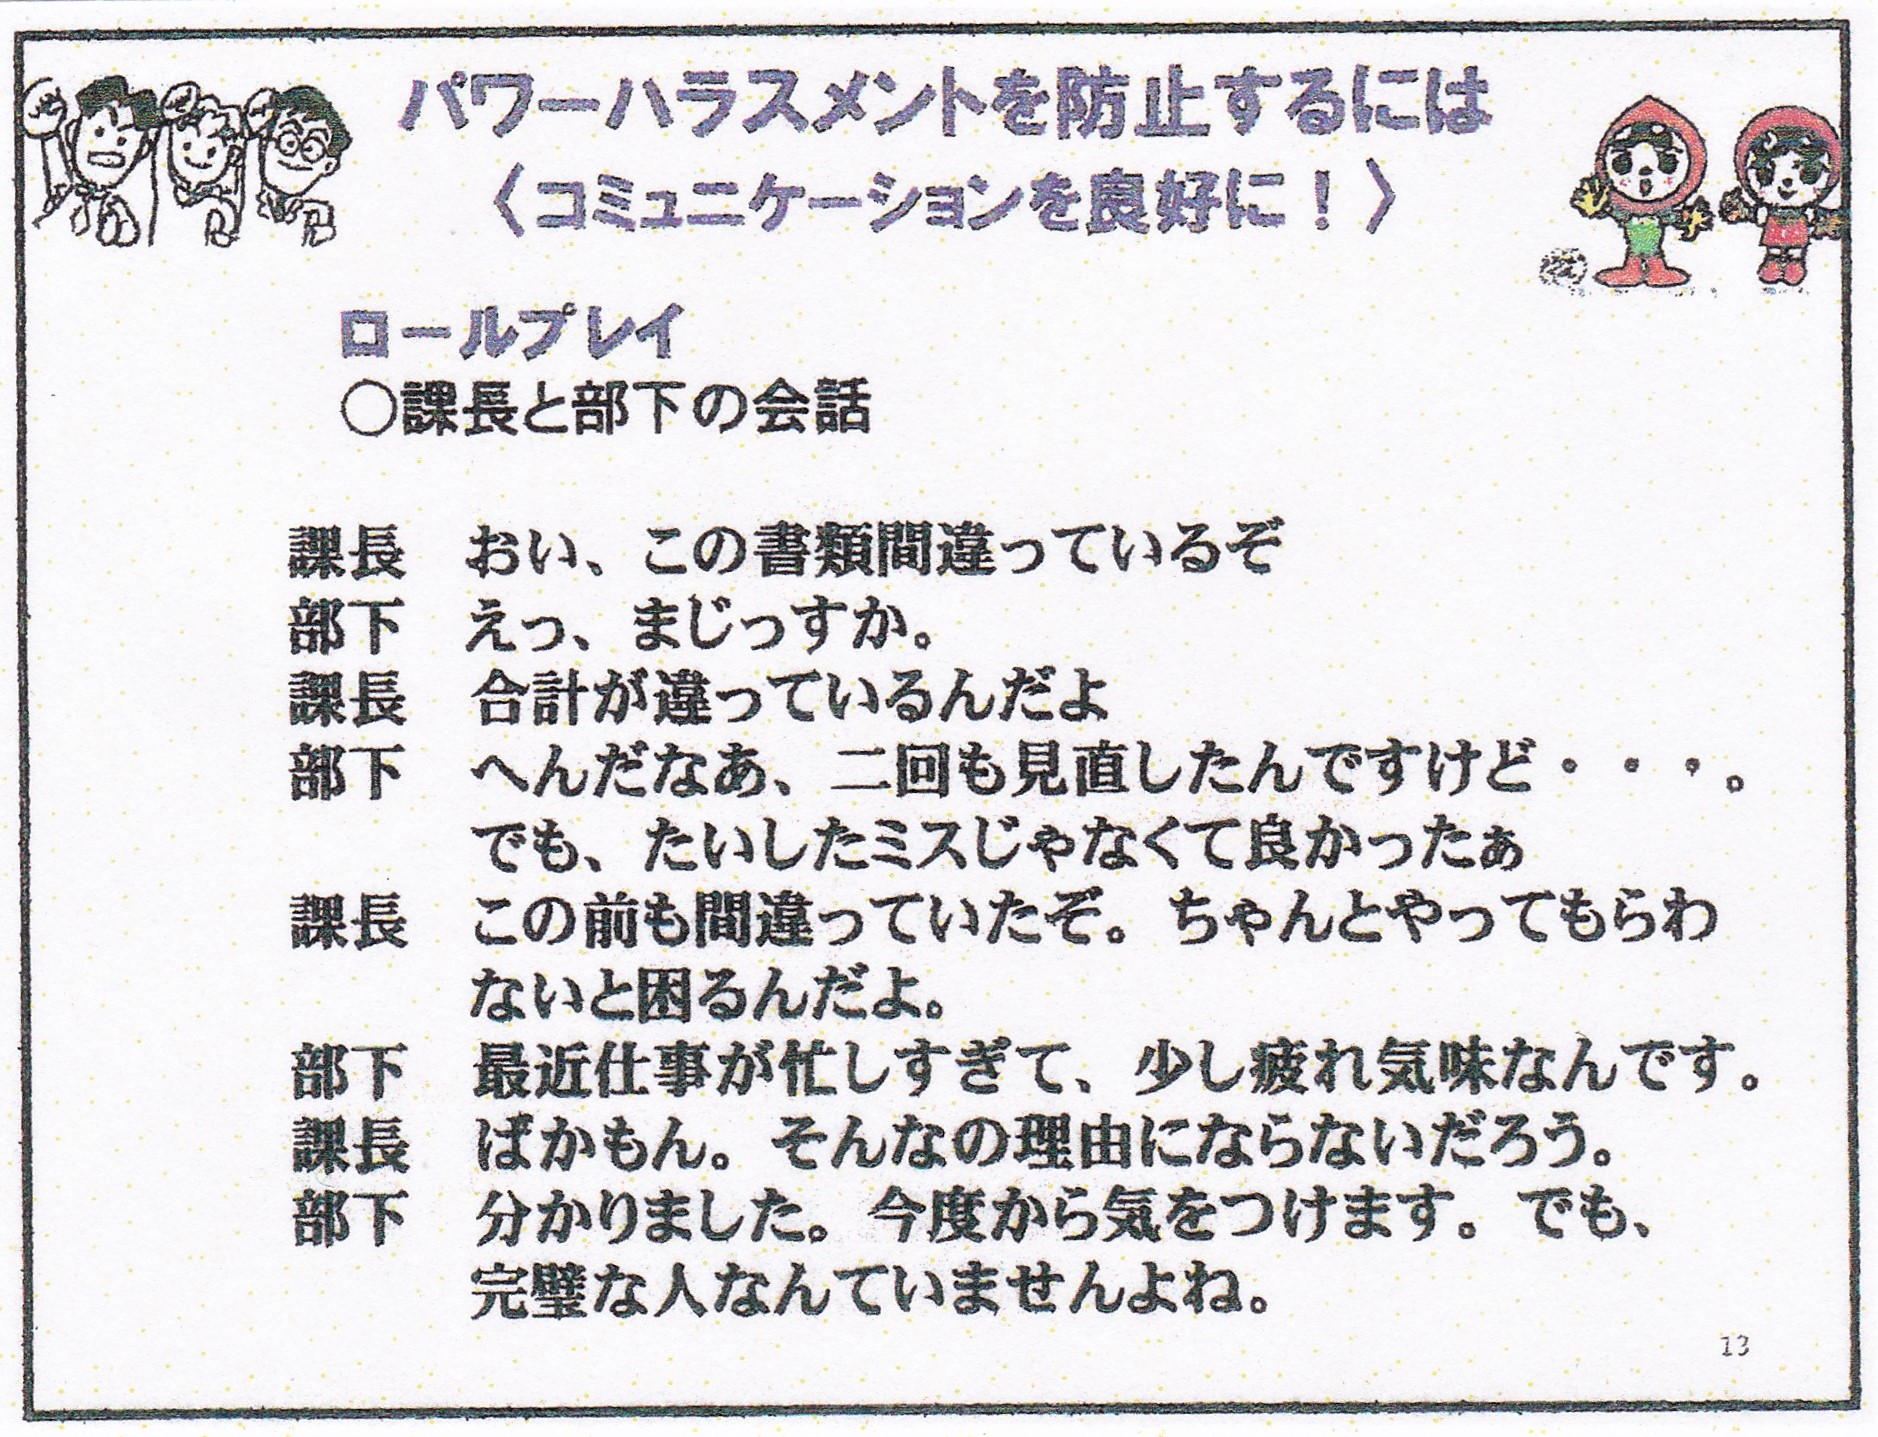 パワーハラスメントを防止するには
〈コミュニケーションを良好に！〉
ロールプレイ
○課長と部下の会話
課長　おい、この書類間違っているぞ
部下　えっ、まじっすか。
課長　合計が違っているんだよ
部下　へんだなあ、二回も見直したんですけど・・・。
でも、たいしたミスじゃなくて良かったぁ
課長　この前も間違っていたぞ。ちゃんとやってもらわ
ないと困るんだよ。
部下　最近仕事が忙しすぎて、少し疲れ気味なんです。
課長　ばかもん。そんなの理由にならないだろう。
部下　分かりました。今度から気をつけます。でも、
完璧な人なんていませんよね。
13